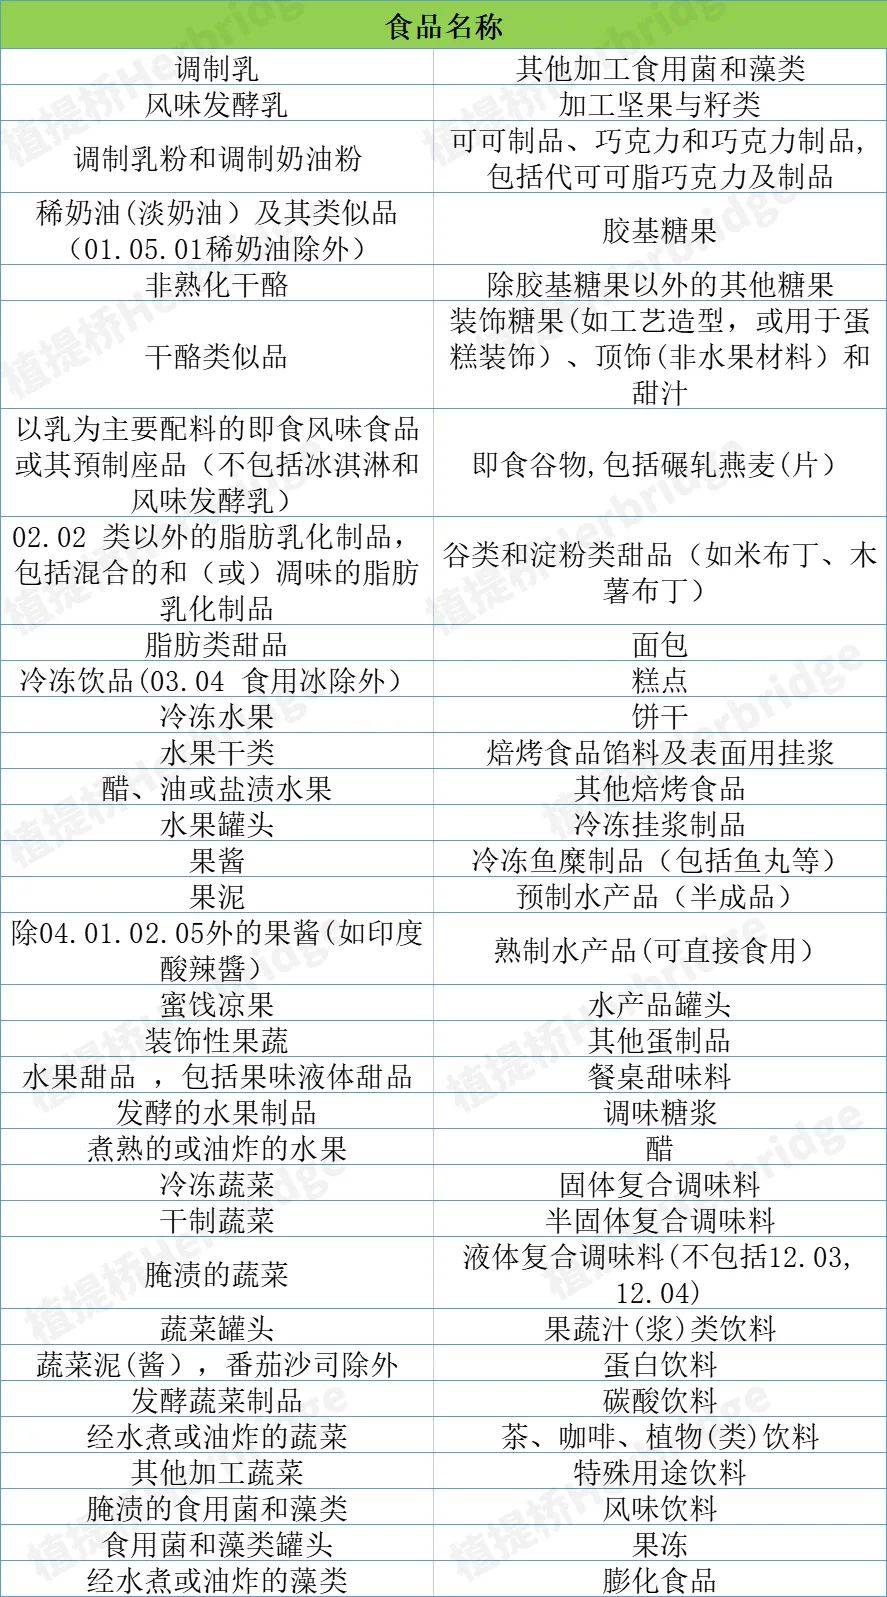 食品名称
调制乳
其他加工食用菌和藻类
风味发酵乳
加工坚果与籽类
调制乳粉和调制奶油粉
可可制品、巧克力和巧克力制品,
包括代可可脂巧克力及制品
稀奶油(淡奶油）及其类似品
（01.05.01稀奶油除外）
胶基糖果
非熟化干酪
除胶基糖果以外的其他糖果
干酪类似品
装饰糖果(如工艺造型，或用于蛋
糕装饰）、顶饰(非水果材料）和
甜汁
以乳为主要配料的即食风味食品
或其預制座品（不包括冰淇淋和
风味发酵乳）
即食谷物,包括碾轧燕麦(片）
02.02 类以外的脂肪乳化制品，
包括混合的和（或）凋味的脂肪
乳化制品
谷类和淀粉类甜品（如米布丁、木
薯布丁）
脂肪类甜品
面包
冷冻饮品(03.04 食用冰除外）
糕点
冷冻水果
饼干
水果干类
焙烤食品馅料及表面用挂浆
醋、油或盐渍水果
其他焙烤食品
水果罐头
冷冻挂浆制品
果酱
冷冻鱼糜制品（包括鱼丸等）
果泥
预制水产品（半成品）
除04.01.02.05外的果酱(如印度
酸辣醬）
熟制水产品(可直接食用）
蜜饯凉果
水产品罐头
装饰性果蔬
其他蛋制品
水果甜品 ，包括果味液体甜品
餐桌甜味料
发酵的水果制品
调味糖浆
煮熟的或油炸的水果
醋
冷冻蔬菜
固体复合调味料
干制蔬菜
半固体复合调味料
腌渍的蔬菜
液体复合调味料(不包括12.03,
12.04)
蔬菜罐头
果蔬汁(浆)类饮料
蔬菜泥(酱），番茄沙司除外
蛋白饮料
发酵蔬菜制品
碳酸饮料
经水煮或油炸的蔬菜
茶、咖啡、植物(类)饮料
其他加工蔬菜
特殊用途饮料
腌渍的食用菌和藻类
风味饮料
食用菌和藻类罐头
果冻
经水煮或油炸的藻类
膨化食品
植提桥Herbridge